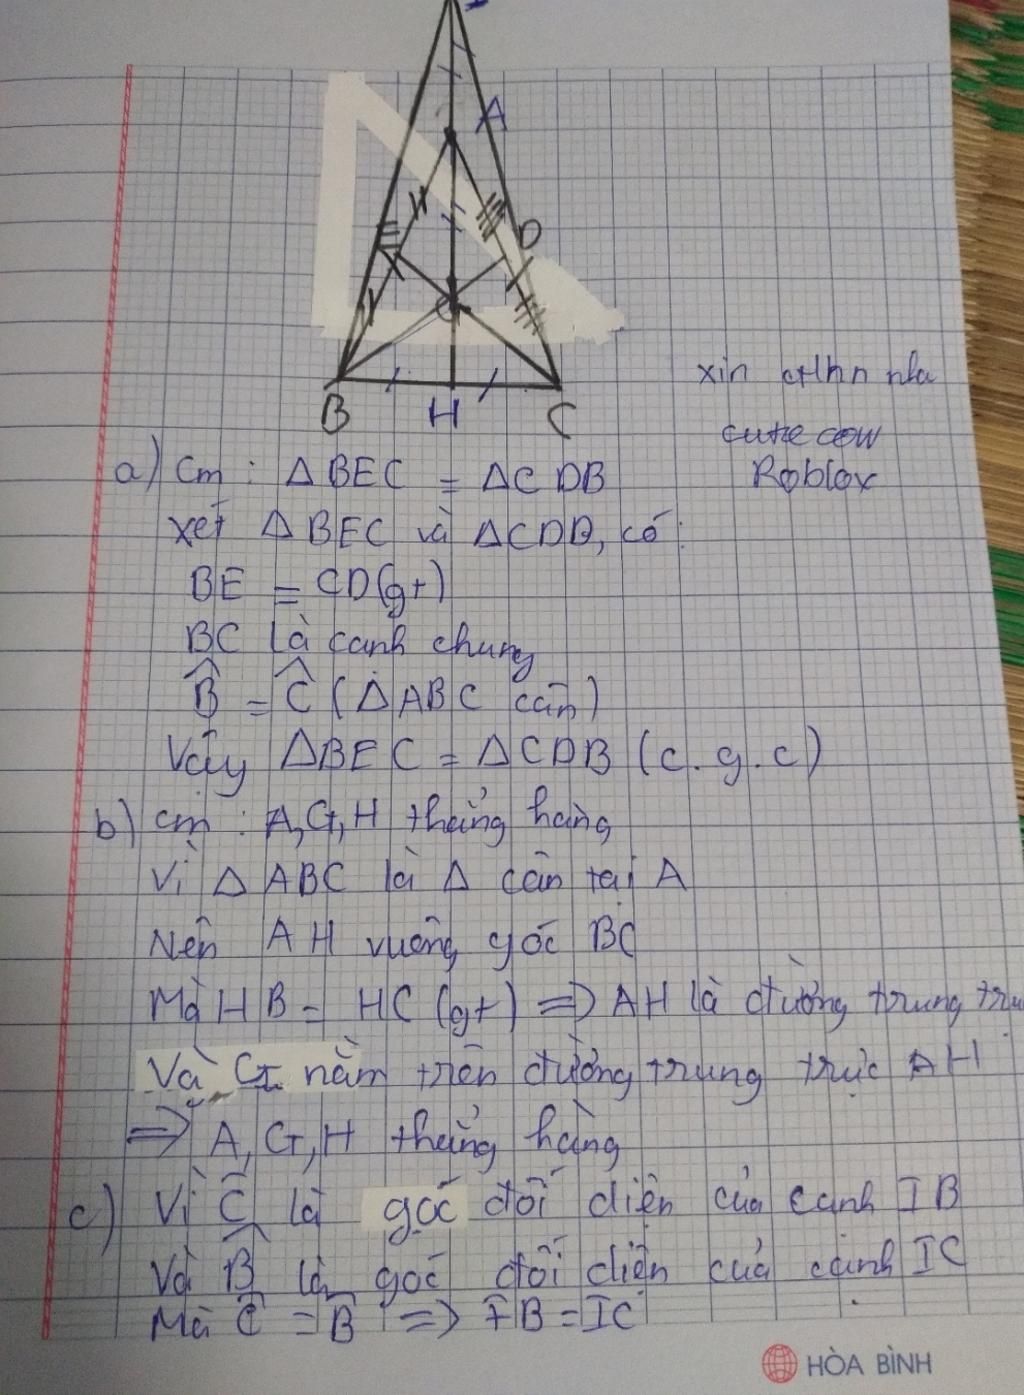 A
D
B H C
xin ctlhn nha
cute cow
Roblox
a) Cm : Δ BEC = ΔCDB
xét Δ BEC và ΔCDB, có:
BE = CD(gt)
BC là cạnh chung
B̂ = Ĉ (ΔABC cân)
Vậy ΔBEC = ΔCDB (c.g.c)
b) cm : A,G,H thẳng hàng
Vì Δ ABC là Δ cân tại A
Nên AH vuông góc BC
Mà HB = HC (gt) => AH là đường trung
Và G nằm trên đường trung trực AH
=> A,G,H thẳng hàng
c) Vì Ĉ là góc đối diện của cạnh IB
Và B̂ là góc đối diện của cạnh IC
Mà Ĉ = B̂ => IB = IC
HÒA BÌNH